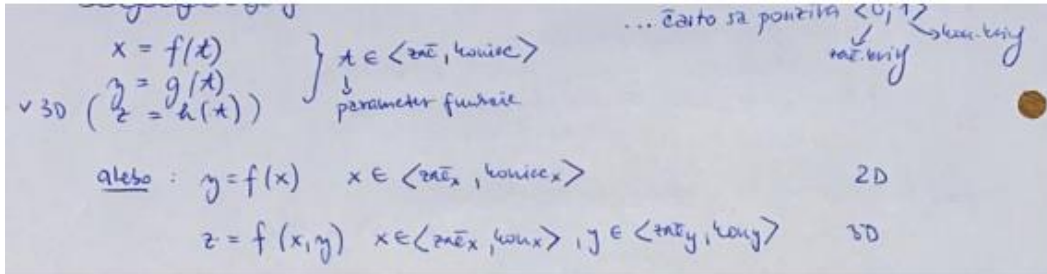 ... často sa používa <0,1>
zač. krivky kon. krivky
x = f(t)
y = g(t) } t ∈ <zač, koniec>
v 3D ( z = h(t) ) parameter funkcie
alebo : y = f(x) x ∈ <začₓ, koniecₓ> 2D
z = f(x,y) x ∈ <začₓ, konₓ>, y ∈ <zač_y, kon_y> 3D